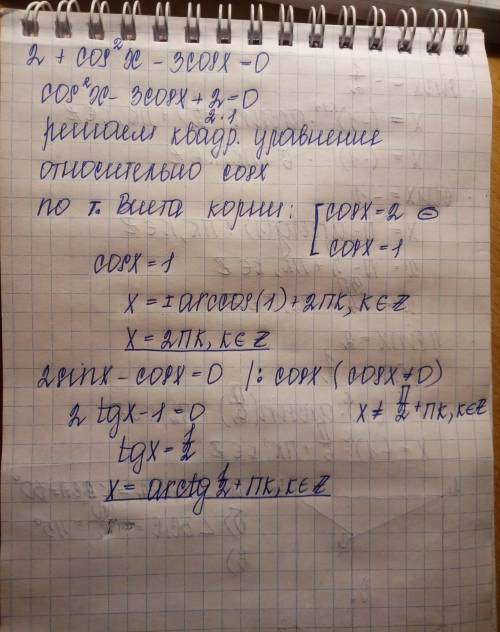 2 + cos²x - 3cosx = 0
cos²x - 3cosx + 2 = 0
2·1
решаем квадр. уравнение
относительно cosx
по т. Виета корни: [cosx = 2 ⊖
cosx = 1
cosx = 1
x = ±arccos(1) + 2πk, k∈Z
x = 2πk, k∈Z
2sinx - cosx = 0 /: cosx (cosx ≠ 0)
2 tgx - 1 = 0 x ≠ π/2 + πk, k∈Z
tgx = 1/2
x = arctg 1/2 + πk, k∈Z